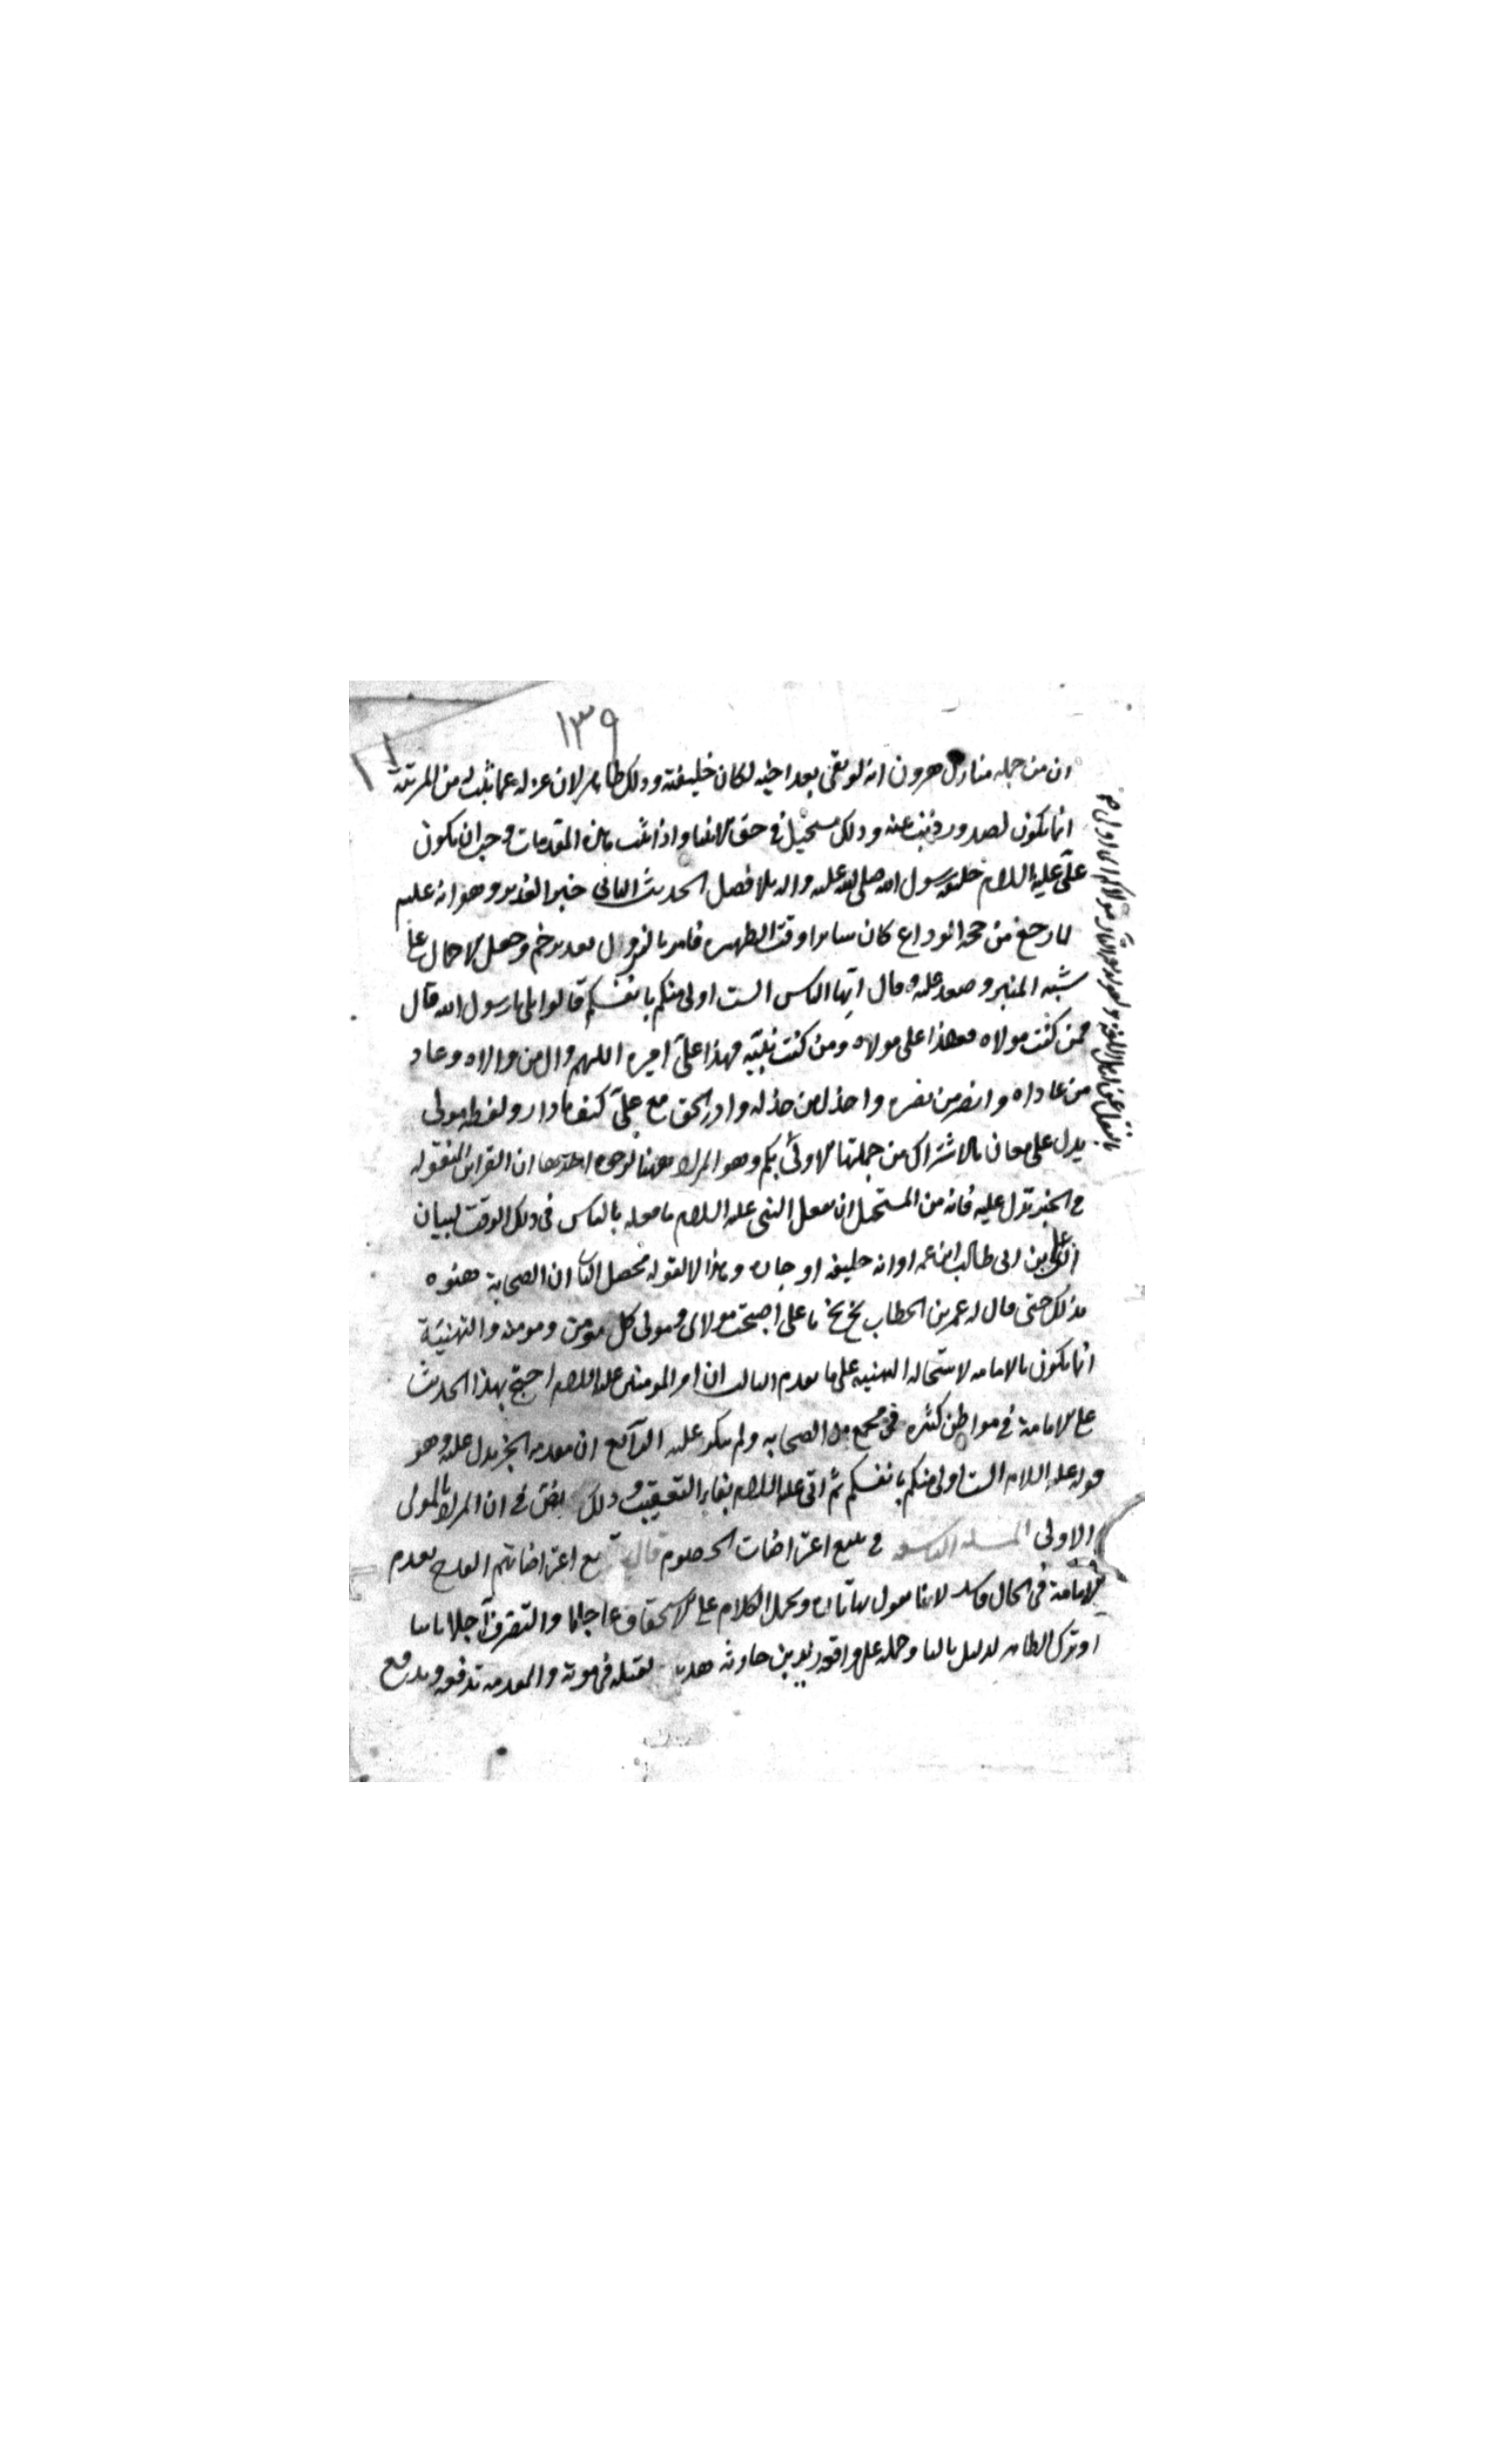 ١٣٩
ان من جمله منازل هرون انه لو بقى بعد اخيه لكان خليفته وذلك ظاهر لان عزله عما ثبت له من المرتبة
انما يكون لصدور ذنب عنه وذلك مستحيل فى حق الانبيا واذا ثبت هذه المقدمات وجب ان يكون
على عليه السلام خليفه رسول الله صلى الله عليه واله بلا فصل الحديث الثانى خبر الغدير وهو انه عليه
لما رجع من حجه الوداع كان سايرا وقت الظهيره فامر بالنزول بغدير خم وجعل الاحمال على
شبه المنبر وصعد عليه وقال ايها الناس الست اولى منكم بانفسكم قالوا بلى يا رسول الله قال
فمن كنت مولاه فهذا على مولاه ومن كنت نبيه فهذا على اميره اللهم وال من والاه وعاد
من عاداه وانصر من نصره واخذل من خذله وادر الحق مع على كيف ما دار ولفظه مولى
يدل على معان بالاشتراك من جملتها الاولى بكم وهو المراد ههنا لوجوه احدها ان القراين المنقوله
فى الخبر تدل عليه فانه من المستحيل ان يفعل النبى عليه السلام ما فعله بالناس فى ذلك الوقت لبيان
ان على بن ابى طالب ابن عمه او انه حليفه او جاره وهذا لا يقوله محصل الثانى ان الصحابة هنوه
بذلك حتى قال له عمر بن الخطاب بخ بخ يا على اصبحت مولاى ومولى كل مومن ومومنه والتهنية
انما يكون بالامامه لاستحاله التهنيه على ما تقدم الثالث ان امير المومنين عليه السلام احتج بهذا الحديث
على الامامة فى مواطن كثيره فى مجمع من الصحابه ولم ينكر عليه الرابع ان مقدمه الخبر يدل عليه وهو
قوله عليه السلام الست اولى منكم بانفسكم ثم اتى عليه السلام بفاء التعقيب وذلك نص فى ان المراد بالمولى
الاولى المسله التاسعه فى تتبع اعتراضات الخصوم قال تتبع اعتراضاتهم القدح بعدم
الامامة فى الحال فاسد لانا نقول بها تاره ونحمل الكلام على الاستحقاق عاجلا والتصرف آجلا ثانيا
او نترك الظاهر لدليل ثالثا وحمله على واقعه زيد بن حارثه هدر لقتله فى موته والمقدمه تدفعه ويدفع